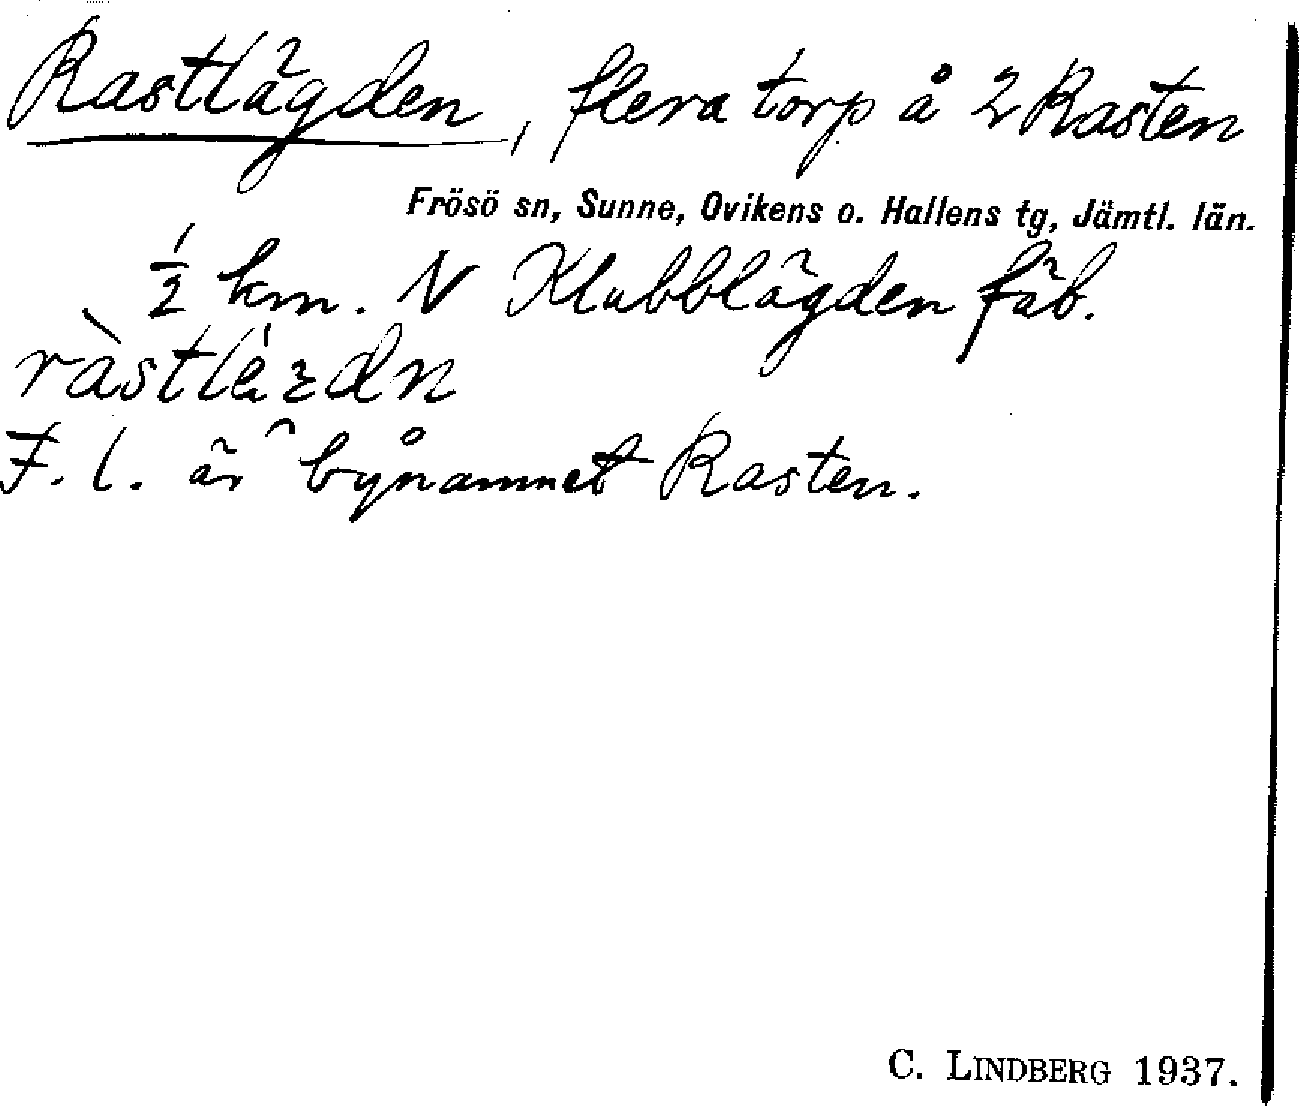 Rastlägden, flera torp å 2 Rasten
Frösö sn, Sunne, Ovikens o. Hallens tg, Jämtl. län.
½ km. N Klubblägden fäb.
F. l. är bynamnet Rasten.
C. LINDBERG 1937.